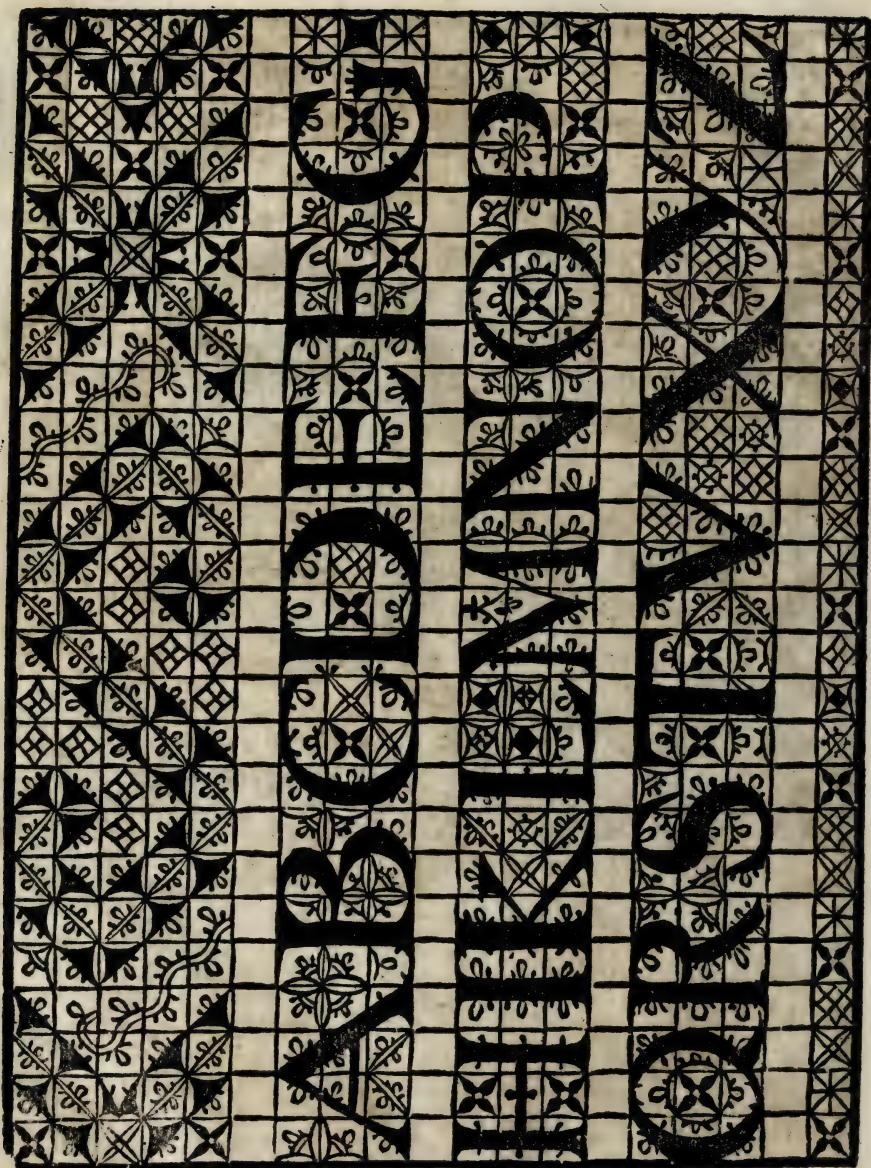 ABCDEFG
HIKLMNOP
QRSTVXYZ